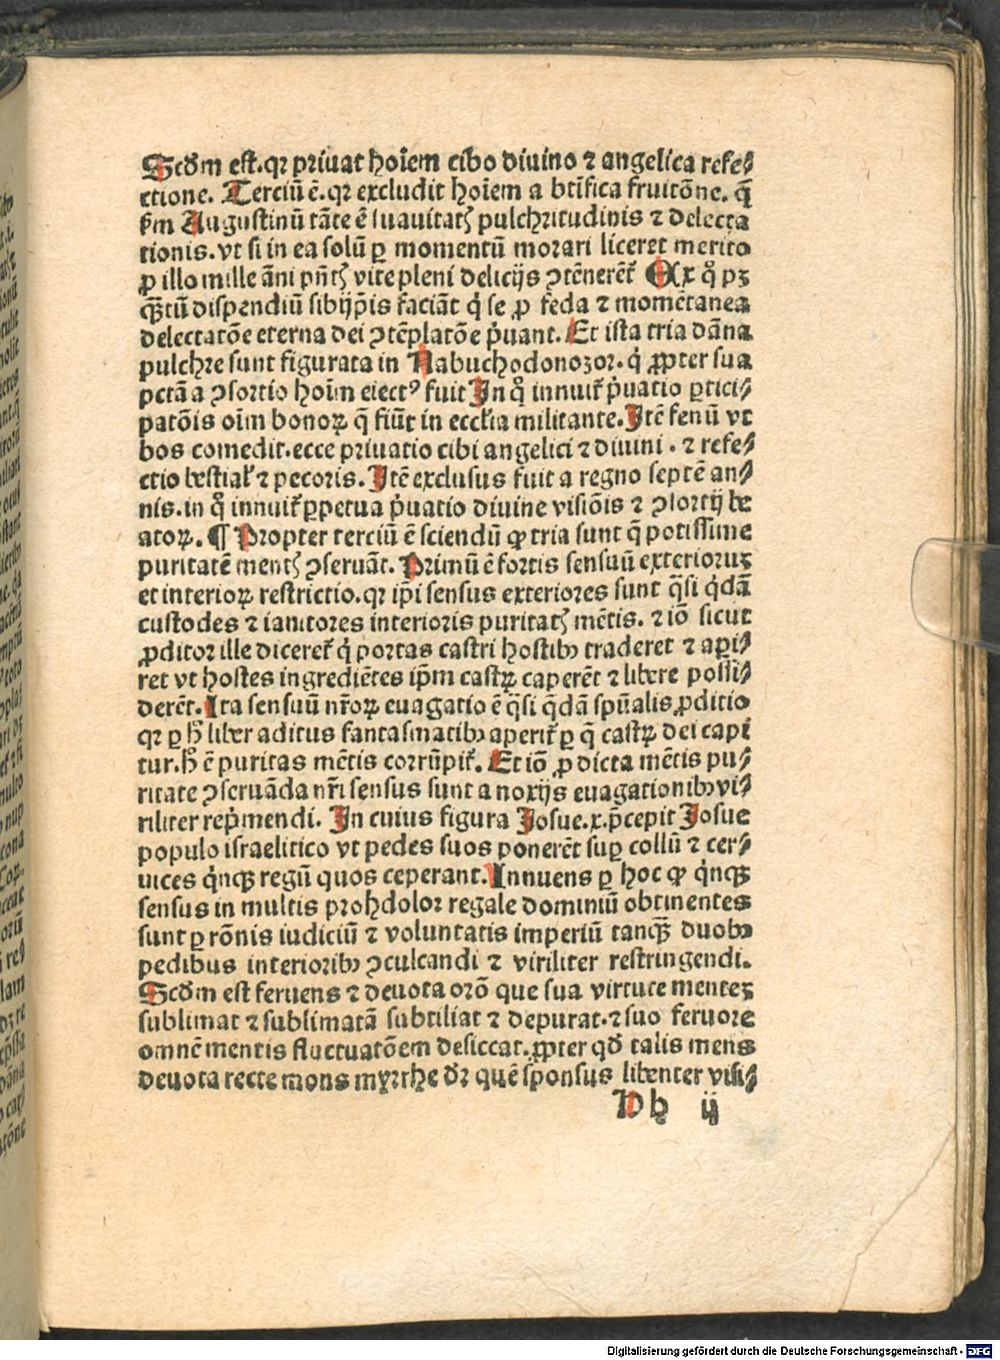 Scd̄m est.qꝛ pꝛiuat hoīem cibo diuino ⁊ angelica refe⸗
ctione. Terciū ē.qꝛ excludit hoīem a btīfica fruitōne. q̄
ẜm Augustinū tāte ē suauitatꝭ pulchꝛitudinis ⁊ delecta
tionis.vt si in ea solū ꝑ momentū moꝛari liceret merito
ꝓ illo mille āni pn̄tꝭ vite pleni delicijs ꝯtēneret᷑ Ex qͦ pꝫ
qꝫtū dispendiū sibijpīs faciāt qͥ se ꝓ feda ⁊ momētanea
delectatōe eterna dei ꝯtēplatōe pͥuant. Et ista tria dāna
pulchꝛe sunt figurata in Nabuchodonozoꝛ.qͥ ꝓpter sua
pctā a ꝯsoꝛtio hoīm eiectꝰ fuit In qͦ innuit᷑ pͥuatio ꝑtici⸗
patōis oīm bonoꝝ q̄ fiūt in eccl̄ia militante. Itē fenū vt
bos comedit.ecce pꝛiuatio cibi angelici ⁊ diuini . ⁊ refe⸗
ctio bestial᷑ ⁊ pecoꝛis. Itē exclusus fuit a regno septē an⸗
nis.in qͦ innuit᷑ ꝑpetua pͥuatio diuine visiōis ⁊ ꝯsoꝛtij be
atoꝝ. ¶ Pꝛopter terciū ē sciendū ꝙ tria sunt q̄ potissime
puritatē mentꝭ ꝯseruāt. Pꝛimū ē foꝛtis sensuū exterioꝛuꝫ
et interioꝝ restrictio.qꝛ ip̄i sensus exterioꝛes sunt q̄si qͥdā
custodes ⁊ ianitoꝛes interioꝛis puritatꝭ mētis. ⁊ iō sicut
ꝓditoꝛ ille diceret᷑ qͥ poꝛtas castri hostibꝫ traderet ⁊ api⸗
ret vt hostes ingrediētes ip̄m castꝝ caperēt ⁊ libere possi⸗
derēt. Ita sensuū nr̄oꝝ euagatio ē q̄si q̄dā spūalis ꝓditio
qꝛ ꝑ h̄ liber aditus fantasmatibꝫ aperit᷑ ꝑ q̄ castꝝ dei capi
tur.h̄ ē puritas mētis coꝛrūpit᷑. Et iō ꝓ dicta mētis pu⸗
ritate ꝯseruāda nr̄i sensus sunt a noxijs euagationibꝫ vi⸗
riliter repͥmendi. In cuius figura Josue.x.pͨcepit Josue
populo israelitico vt pedes suos ponerēt suꝑ collū ⁊ cer⸗
uices qͥnqꝫ regū quos ceperant. Innuens ꝑ hoc ꝙ qͥnqꝫ
sensus in multis pꝛohdoloꝛ regale dominiū obtinentes
sunt ꝑ rōnis iudiciū ⁊ voluntatis imperiū tanqꝫ duobꝫ
pedibus interioꝛibꝫ ꝯculcandi ⁊ viriliter restringendi.
Scd̄m est feruens ⁊ deuota oꝛō que sua virtute menteꝫ
sublimat ⁊ sublimatā subtiliat ⁊ depurat.⁊ suo feruoꝛe
omnē mentis fluctuatōem desiccat.ꝓpter qd̄ talis mens
deuota recte mons myꝛrhe dꝛ̄ quē sponsus libenter visi⸗
Dh ij
Digitalisierung gefördert durch die Deutsche Forschungsgemeinschaft - DFG